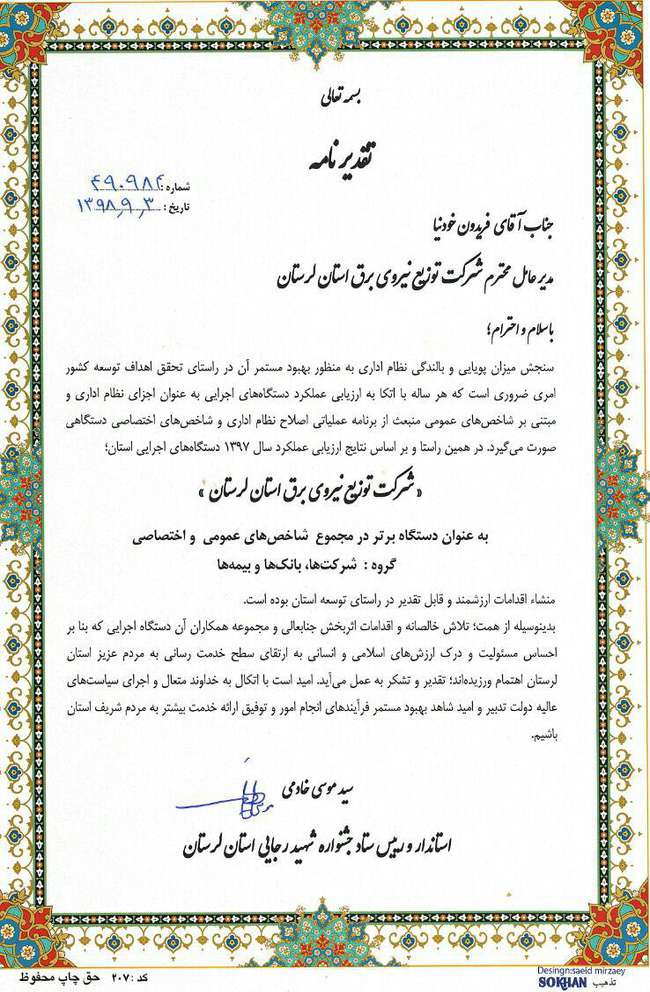 بسمه تعالی
تقدیرنامه
شماره: ۴۹۰۹۸۴
تاریخ: ۱۳۹۸,۹,۳
جناب آقای فریدون خودنیا
مدیرعامل محترم شرکت توزیع نیروی برق استان لرستان
باسلام و احترام؛
سنجش میزان پویایی و بالندگی نظام اداری به منظور بهبود مستمر آن در راستای تحقق اهداف توسعه کشور
امری ضروری است که هر ساله با اتکا به ارزیابی عملکرد دستگاه‌های اجرایی به عنوان اجزای نظام اداری و
مبتنی بر شاخص‌های عمومی منبعث از برنامه عملیاتی اصلاح نظام اداری و شاخص‌های اختصاصی دستگاهی
صورت می‌گیرد. در همین راستا و بر اساس نتایج ارزیابی عملکرد سال ۱۳۹۷ دستگاه‌های اجرایی استان؛
« شرکت توزیع نیروی برق استان لرستان »
به عنوان دستگاه برتر در مجموع شاخص‌های عمومی و اختصاصی
گروه : شرکت‌ها، بانک‌ها و بیمه‌ها
منشاء اقدامات ارزشمند و قابل تقدیر در راستای توسعه استان بوده است.
بدینوسیله از همت؛ تلاش خالصانه و اقدامات اثربخش جنابعالی و مجموعه همکاران آن دستگاه اجرایی که بنا بر
احساس مسئولیت و درک ارزش‌های اسلامی و انسانی به ارتقای سطح خدمت رسانی به مردم عزیز استان
لرستان اهتمام ورزیده‌اند؛ تقدیر و تشکر به عمل می‌آید. امید است با اتکال به خداوند متعال و اجرای سیاست‌های
عالیه دولت تدبیر و امید شاهد بهبود مستمر فرآیندهای انجام امور و توفیق ارائه خدمت بیشتر به مردم شریف استان
باشیم.
سید موسی خادمی
استاندار و رییس ستاد جشنواره شهید رجایی استان لرستان
کد : ۲۰۷ حق چاپ محفوظ
Desingn:saeid mirzaey
تذهیب SOKHAN